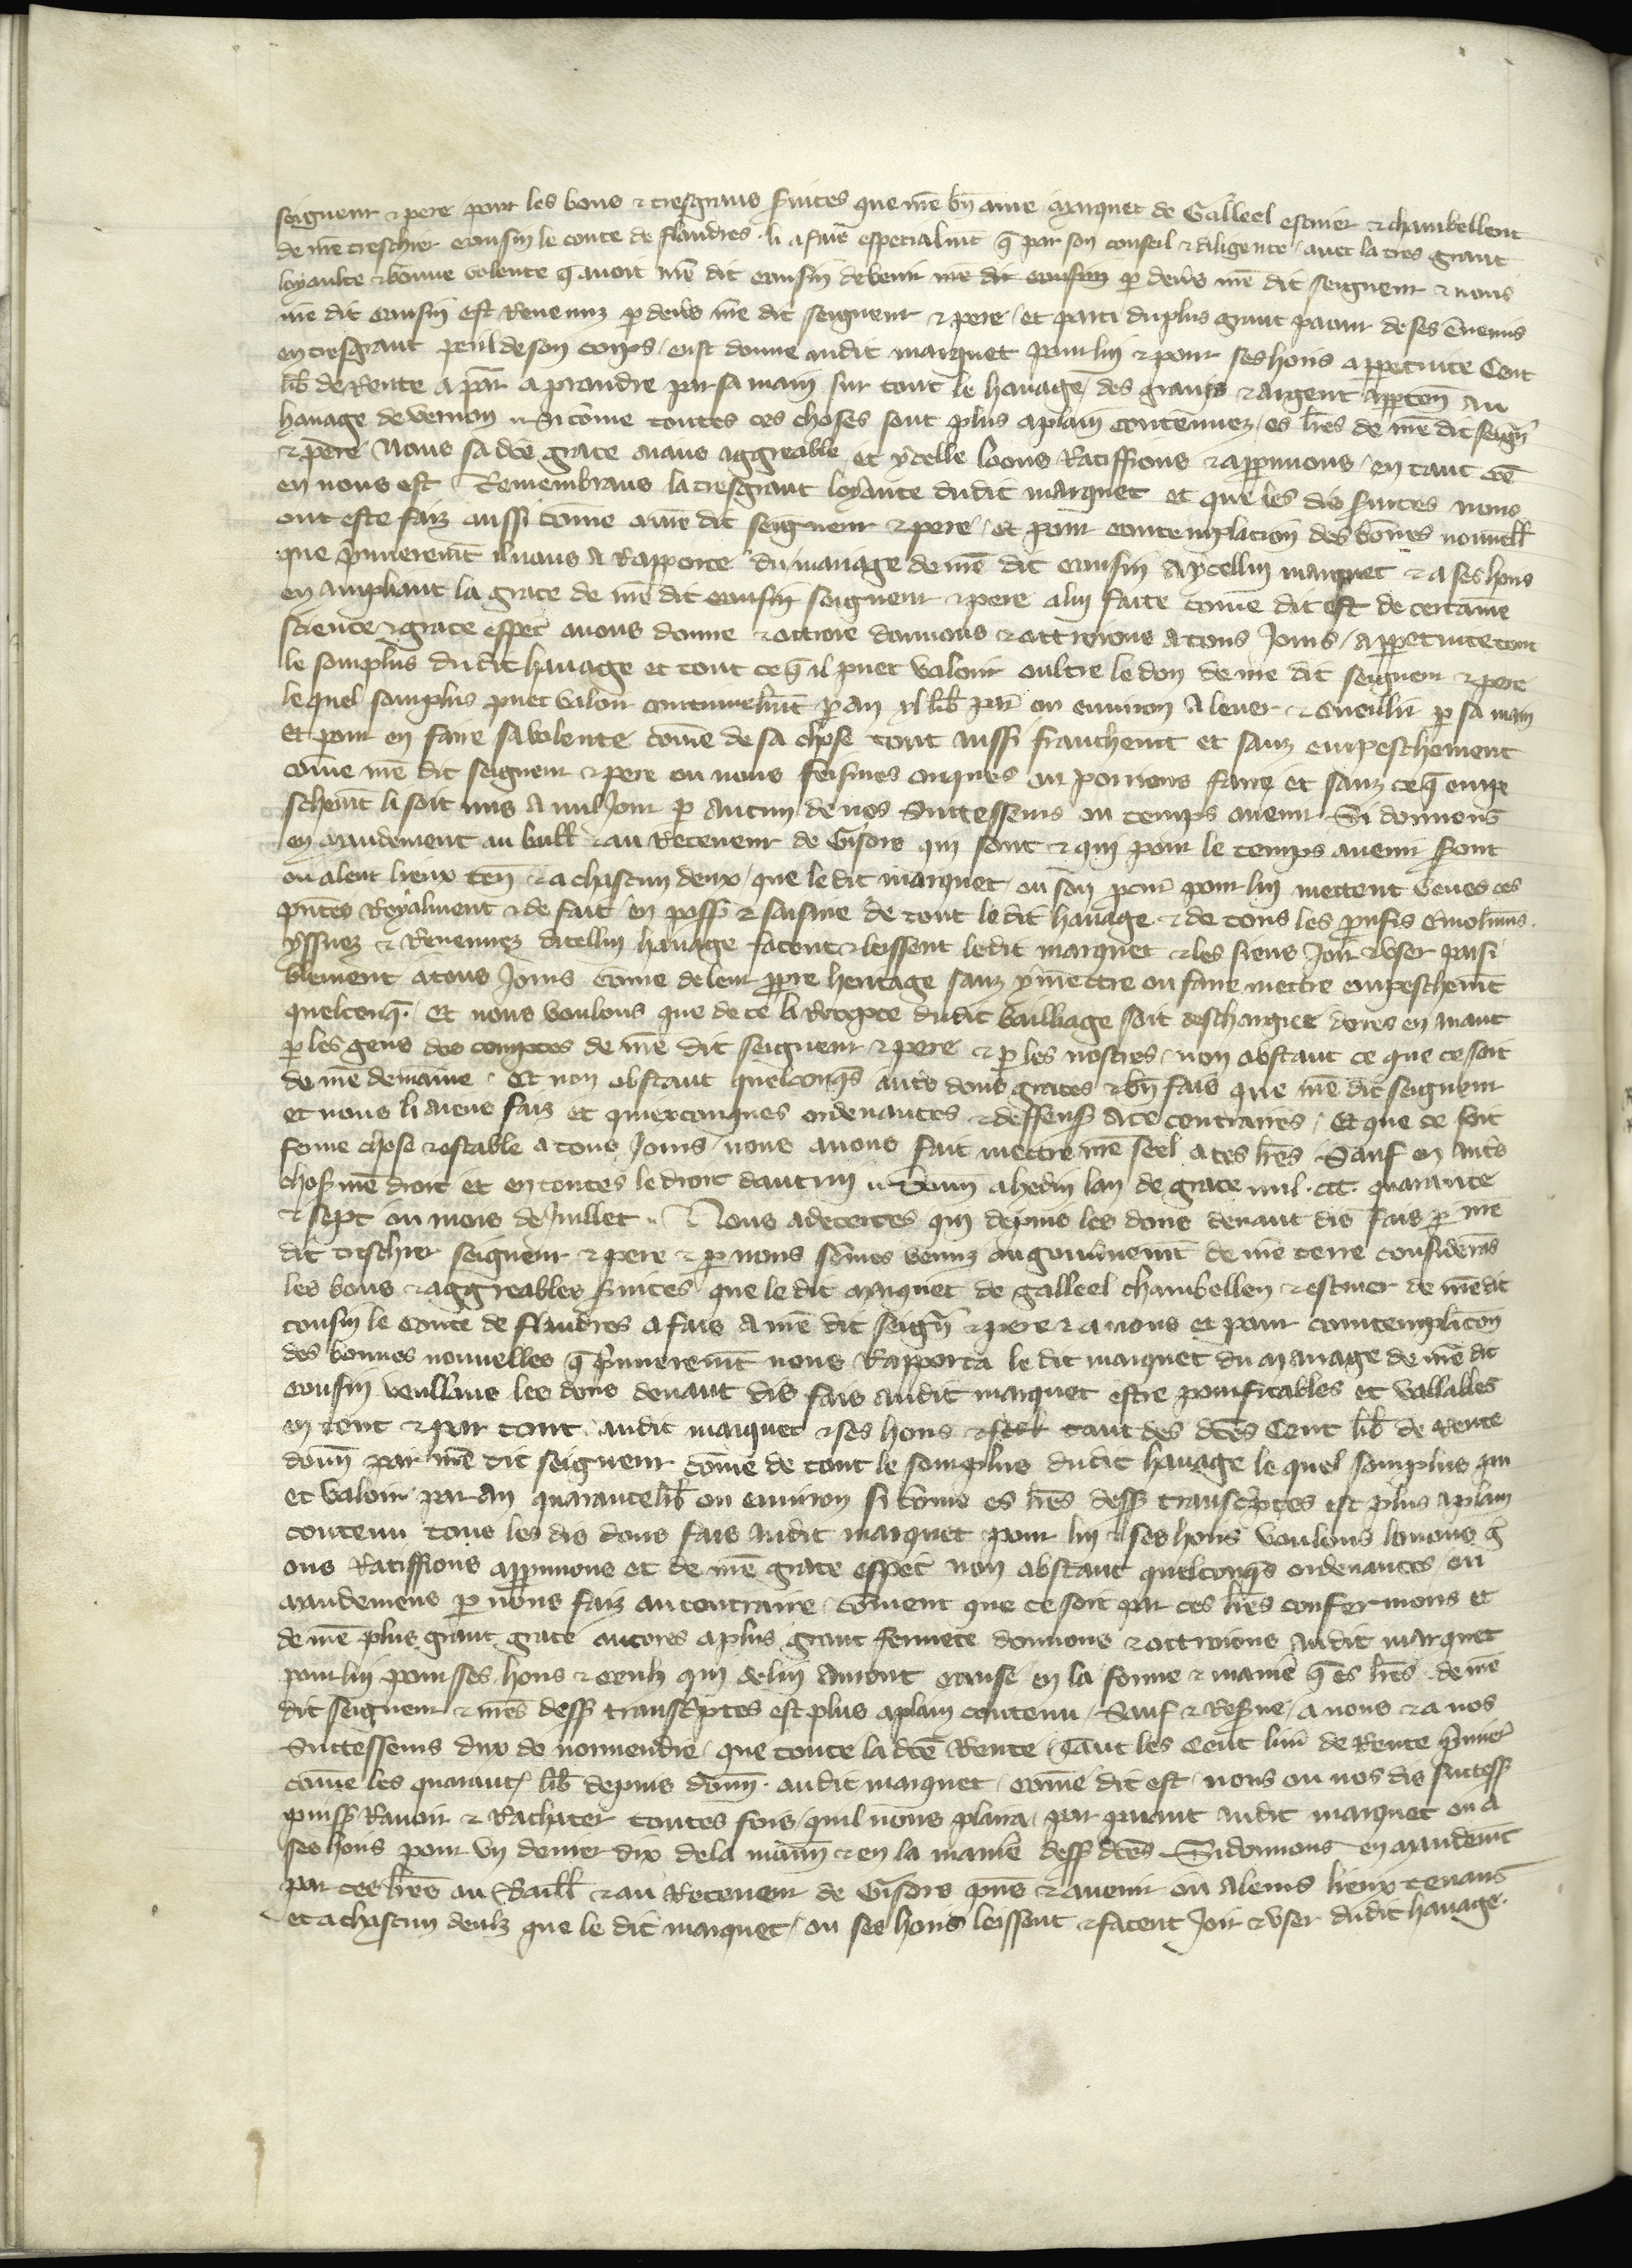 seigneur & pere pour les bons & tresgrans svices que nr̄e bn̄ ame marquet de Galleel escuier & chambellent
de nr̄e treschier cousin le conte de flandres . li a fait especialmt q̄ par son conseil & diligence / avec la tres grant
loyaulte & bonne volente q̄ avoit nr̄e dit cousin de venir nr̄e dit cousin ꝑ devs nr̄e dit seigneur & nous
nr̄e dit cousin est Revenuz ꝑ devs nr̄e dit seigneur & pere / et parti du plus grant povoir de ses ennemis
en tresgrant peril de son corps / eust donne audit marquet pour lui & pour ses hoirs a ppetuite Cent
lib̄ de Rente a par̄ a prandre par sa main sur tout le havage des grains & argent apparten̄ au
havage de vernon // Si cōme toutes ces choses sont plus a plain contenuez / es lr̄es de nr̄e dit seign̄r
& pere Nous sa dc̄e grace aians aggreable et ycelle loons Ratiffions & approuvons / en tant cōe
en nous est Remembrans la tresgrant loyaute dudit marquet et que les dis svices nous
ont este faiz aussi cōme a nr̄e dit seigneur & pere / et pour contemplacion des bōnes nouvell̄
que p̄mieremt̄ il nous a Rapporte du mariage de nr̄e dit cousin A ycellui marquet & a ses hoirs
en ampliant la grace de nr̄e dit cousin seigneur & pere a lui faite cōme dit est de certaine
science & grace esp̄ec avons donne & ottroie donnons & ottroions a tous Jours / a ppetuite tout
le seurplus dudit havage et tout ce q̄ il puet valoir oultre le don de nr̄e dit seigneur & pere
le quel seurplus puet valoir communelmt̄ ꝑ an xl lib̄ par̄ ou environ A lever & cueullir ꝑ sa main
Et pour en faire sa volente cōme de sa chose tout aussi franchemt et sanz empeschement
cōme nr̄e dit seigneur & pere ou nous feismes onques ou porrions faire et sanz ce q̄ empe
schemt̄ li soit mis a nul Jour ꝑ aucun de nos successeurs ou temps avenir Si donnons
en mandement au baill̄ & au Receveur de Gisors qui sont & qui pour le temps avenir sont
ou a leur lieux ten̄ & a chascun deux / que le dit marquet / ou son pcur̄ pour lui mettent veues ces
pn̄tes Royalment & de fait en poss̄ & saisine de tout le dit havage & de tous les pufis emolumn̄s .
yssuez & Revenuez dicellui havage facent & leissent ledit marquet & les siens Joir & user paisi
blement a tous Jours cōme de leur ppre heritage sanz y mettre ou faire mettre empeschemt̄
quelconq̄ . Et nous voulons que de ce la Recepte dudit bailliage soit deschargiee dores en avant
ꝑ les gens des comptes de nr̄e dit seigneur & pere & ꝑ les nostres / non obstant ce que ce soit
de nr̄e demaine . Et non obstant quelconq̄s autrs dons graces & bn̄ fais que nr̄e dit seigneur
et nous li aions faiz et quiexconques ordenances & deffens̄ a ce contraires . Et que ce soit
ferme chose & estable a tous Jours nous avons fait mettre nr̄e seel a ces lr̄es Sauf en autrs
chos̄ nr̄e droit et en toutes le droit dautrui // Donn̄ a hedin lan de grace mil . ccc . quarante
& sept ou mois de Juillet // Nous adecertes qui depuis les dons devant dis fais ꝑ nr̄e
dit treschier seigneur & pere & ꝑ nous sōmes venuz au gouvnement de nr̄e terre considerās
les bons & aggreables svices que le dit marquet de galleel chambellen & escuier de nr̄e dit
cousin le conte de flandres a fais a nr̄e dit seign̄r & pere & a nous et pour contemplacon̄
des bonnes nouvelles q̄ p̄mieremt̄ nous Rapporta le dit marquet du mariage de nr̄e dit
cousin voullons les dons devant dis fais audit marquet estre prouffitables et vallables
en tout & par tout audit marquet & ses hoirs tant des dc̄es Cent lib̄ de Rente
donn̄ par nr̄e dit seigneur cōme de tout le seurplus dudit havage le quel seurplus pu
et valoir par an quarante lib̄ ou environ si cōme es lr̄es dess̄ transcptes est plus a plain
contenu tous les dis dons fais audit marquet pour lui & ses hoirs voulons louons gre
ons Ratiffions approuvons et de nr̄e grace esp̄ec non obstant quelconq̄s ordenances ou
mandemens ꝑ nous faiz au contraire / cōment que ce soit par ces lr̄es confermons et
de nr̄e plus grant grace encores a plus grant fermete donnons & ottroions audit marquet
pour lui pour ses hoirs & ceulz qui de lui auront cause en la forme & maniē q̄ es lr̄es de nr̄e
dit seigneur & nr̄es dess̄ transcptes est plus a plain contenu / Sauf & Resve / a nous & a nos
Successeurs dux de normendie / que toute la dc̄e Rente / tant les Cent livr̄ de Rente p̄mier̄
cōme les quarant̄ lib̄ depuis donn̄ . audit marquet / cōme dit est / nous ou nos dis success̄
puiss̄ Ravoir & Rachater toutes fois / quil nous plaira / par paiant audit marquet ou a
ses hoirs pour un denier dix de la monn̄ & en la maniē dess̄ dc̄es Si donnons en mandemt̄
par ces lr̄es au Baill̄ & au Receveur de Gisors pn̄s & avenir ou a leurs lieux tenans
et a chascun deulz que le dit marquet / ou ses hoirs leissent & facent Joir & user dudit havage .